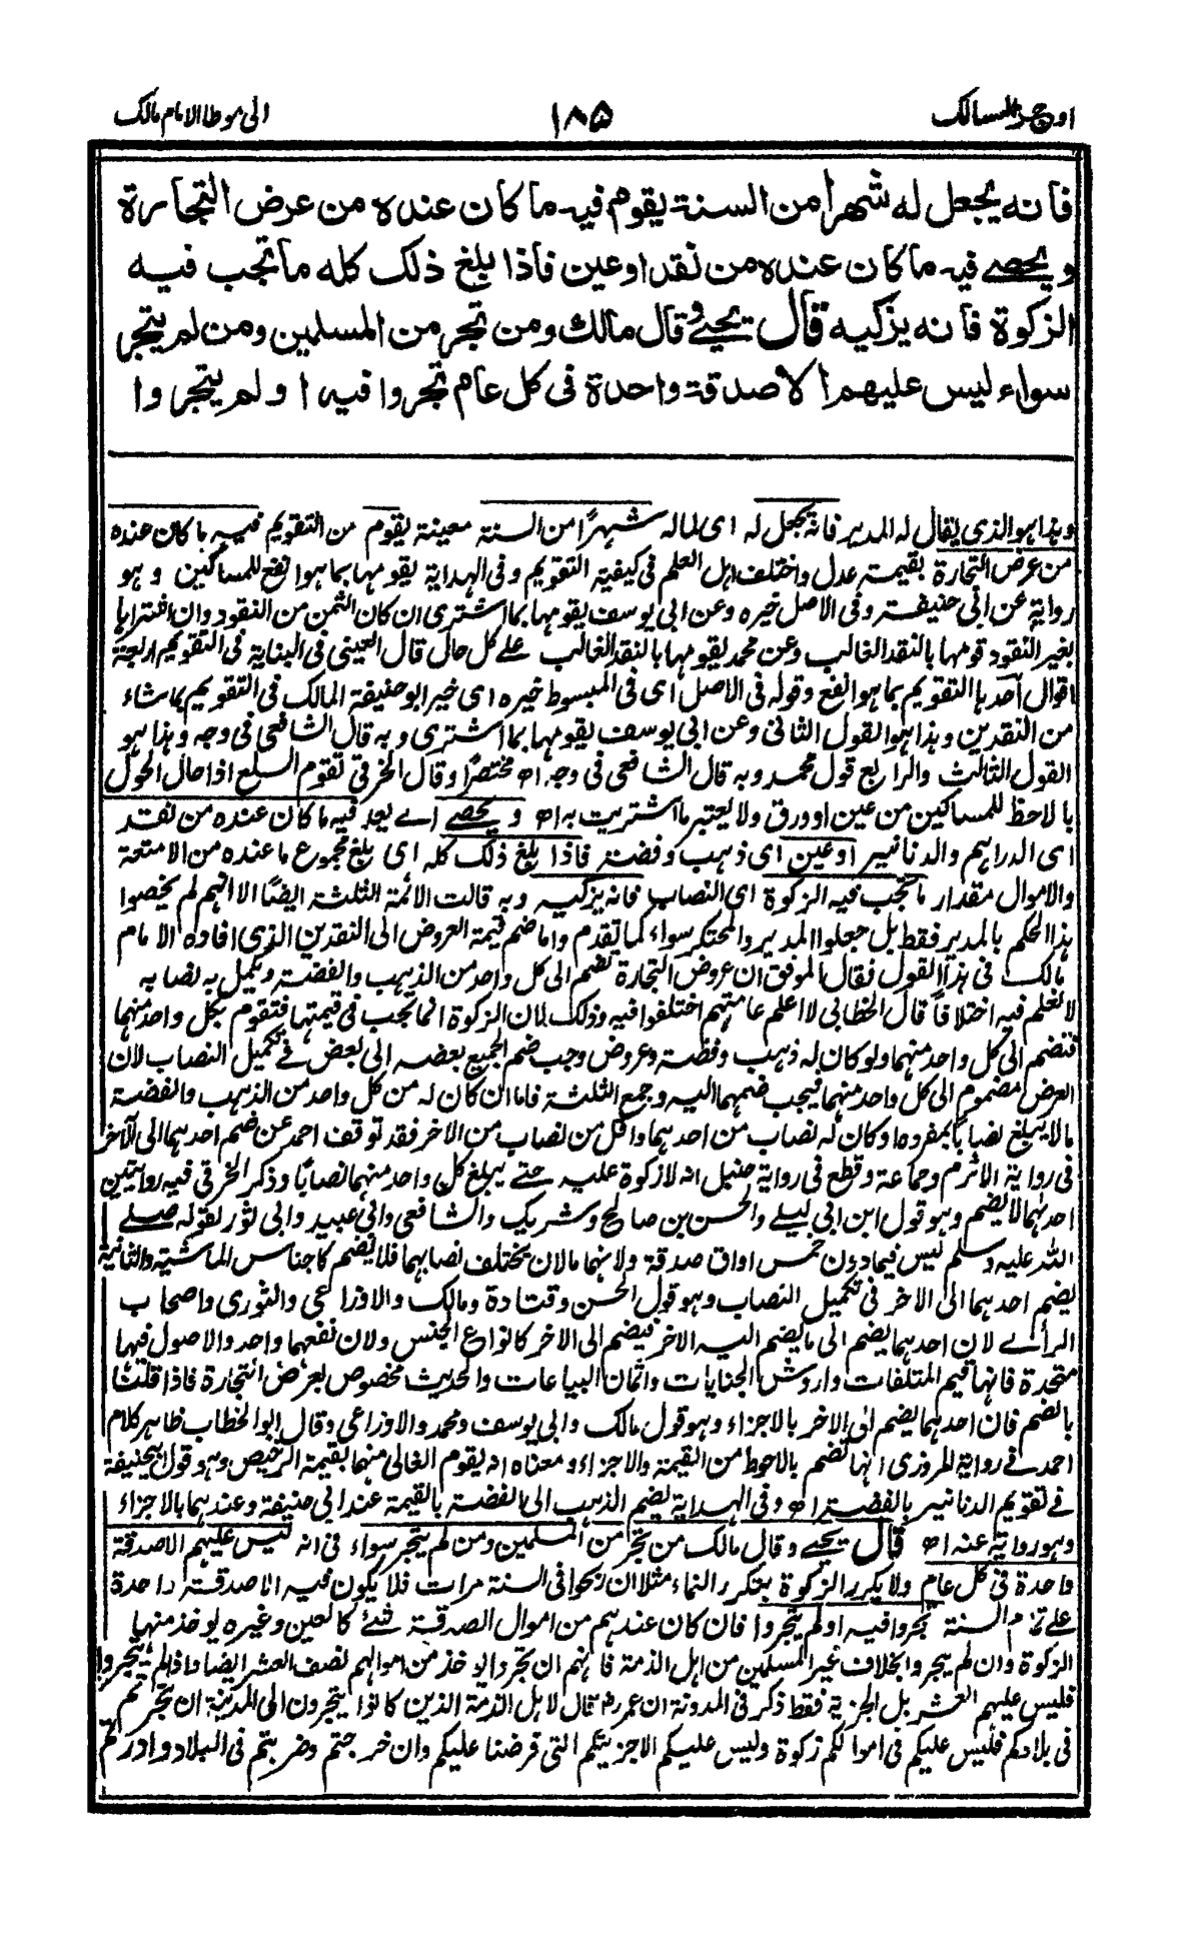 اوجز المسالك
١٨٥
الى موطا الامام مالك
فانه يجعل له شهرا من السنة يقوم فيه ما كان عنده من عرض التجارة
ويحصى فيه ما كان عنده من نقد او عين فاذا بلغ ذلك كله ما تجب فيه
الزكوة فانه يزكيه قال يحيى وقال مالك ومن تجر من المسلمين ومن لم يتجر
سواء ليس عليهم الا صدقة واحدة فى كل عام تجروا فيه او لم يتجروا
وهذا هو الذى يقال له المدير فانه يجعل له اى لماله شهرًا من السنة معينة يقوم من التقويم فيه ما كان عنده
من عرض التجارة بقيمة عدل واختلف اهل العلم فى كيفية التقويم وفى الهداية يقومها بما هو انفع للمساكين وهو
رواية عن ابى حنيفة وفى الاصل خيره وعن ابى يوسف يقومها بما اشترى ان كان الثمن من النقود وان اشتراها
بغير النقود قومها بالنقد الغالب وعن محمد يقومها بالنقد الغالب على كل حال قال العينى فى البناية فى التقويم اربعة
اقوال احدها التقويم بما هو انفع وقوله فى الاصل اى فى المبسوط خيره اى خير ابو حنيفة المالك فى التقويم بما شاء
من النقدين وهذا هو القول الثانى وعن ابى يوسف يقومها بما اشترى وبه قال الشافعى فى وجه وهذا هو
القول الثالث والرابع قول محمد وبه قال الشافعى فى وجه اه مختصرًا وقال الخرقى تقوم السلع اذا حال الحول
بالاحظ للمساكين من عين او ورق ولا يعتبر ما اشتريت به اه ويحصى اے يعد فيه ما كان عنده من نقد
اى الدراهم والدنانير او عين اى ذهب وفضة فاذا بلغ ذلك كله اى بلغ مجموع ما عنده من الامتعة
والاموال مقدار ما تجب فيه الزكوة اى النصاب فانه يزكيه وبه قالت الائمة الثلثة ايضًا الا انهم لم يخصوا
هذا الحكم بالمدير فقط بل جعلوا المدير والمحتكر سواء كما تقدم واما ضم قيمة العروض الى النقدين الذى افاده الامام
مالك فى هذا القول فقال الموفق ان عروض التجارة تضم الى كل واحد من الذهب والفضة ويكمل به نصابه
لا نعلم فيه اختلافًا قال الخطابى لا اعلم عامتهم اختلفوا فيه وذلك لان الزكوة انما تجب فى قيمتها فتقوم بكل واحد منهما
فتضم الى كل واحد منهما ولو كان له ذهب وفضة وعروض وجب ضم الجميع بعضه الى بعض فى تكميل النصاب لان
العرض مضموم الى كل واحد منهما فيجب ضمهما اليه وجمع الثلثة فاما ان كان له من كل واحد من الذهب والفضة
ما لا يبلغ نصابًا بمفرده او كان له نصاب من احدهما واقل من نصاب من الاخر فقد توقف احمد عن ضم احدهما الى الآخر
فى رواية الاثرم وجماعة وقطع فى رواية حنبل انه لا زكوة عليه حتى يبلغ كل واحد منهما نصابًا وذكر الخرقى فيه روايتين
احدٰهما لا يضم وهو قول ابن ابى ليلى والحسن بن صالح وشريك والشافعى وابى عبيد وابى ثور لقوله صلى
الله عليه وسلم ليس فيما دون خمس اواق صدقة ولانهما مالان يختلف نصابهما فلا يضم كاجناس الماشية والثانية
يضم احدهما الى الاخر فى تكميل النصاب وهو قول الحسن وقتادة ومالك والاوزاعى والثورى واصحاب
الراى لان احدهما يضم الى ما يضم اليه الاخر فيضم الى الاخر كانواع الجنس ولان نفعهما واحد والاصول فيهما
متحدة فانها قيم المتلفات واروش الجنايات واثمان البياعات والحديث مخصوص بعرض التجارة فاذا قلنا
بالضم فان احدهما يضم الى الاخر بالاجزاء وهو قول مالك وابى يوسف ومحمد والاوزاعى وقال ابو الخطاب ظاهر كلام
احمد فى رواية المروذى انها تضم بالاحوط من القيمة والاجزاء ومعناه انه يقوم الغالى منهما بقيمة الرخيص وهو قول ابى حنيفة
فى تقويم الدنانير بالفضة اه وفى الهداية يضم الذهب الى الفضة بالقيمة عند ابى حنيفة وعندهما بالاجزاء
وهو رواية عنه اه قال يحيى وقال مالك من تجر من المسلمين ومن لم يتجر سواء فى انه ليس عليهم الا صدقة
واحدة فى كل عام ولا يكرر الزكوة بتكرر النماء مثلا ان ربحوا فى السنة مرات فلا يكون فيه الا صدقة واحدة
على تمام السنة تجروا فيه او لم يتجروا فان كان عندهم من اموال الصدقة شئ كالعين وغيره يوخذ منها
الزكوة وان لم يتجروا بخلاف غير المسلمين من اهل الذمة فانهم ان تجروا يوخذ من اموالهم نصف العشر ايضا واذا لم يتجروا
فليس عليهم العشر بل الجزية فقط ذكر فى المدونة ان عمر رض قال لاهل الذمة الذين كانوا يتجرون الى المدينة ان تجرتم
فى بلادكم فليس عليكم فى اموالكم زكوة وليس عليكم الا جزيتكم التى فرضنا عليكم وان خرجتم وضربتم فى البلاد وادرتم